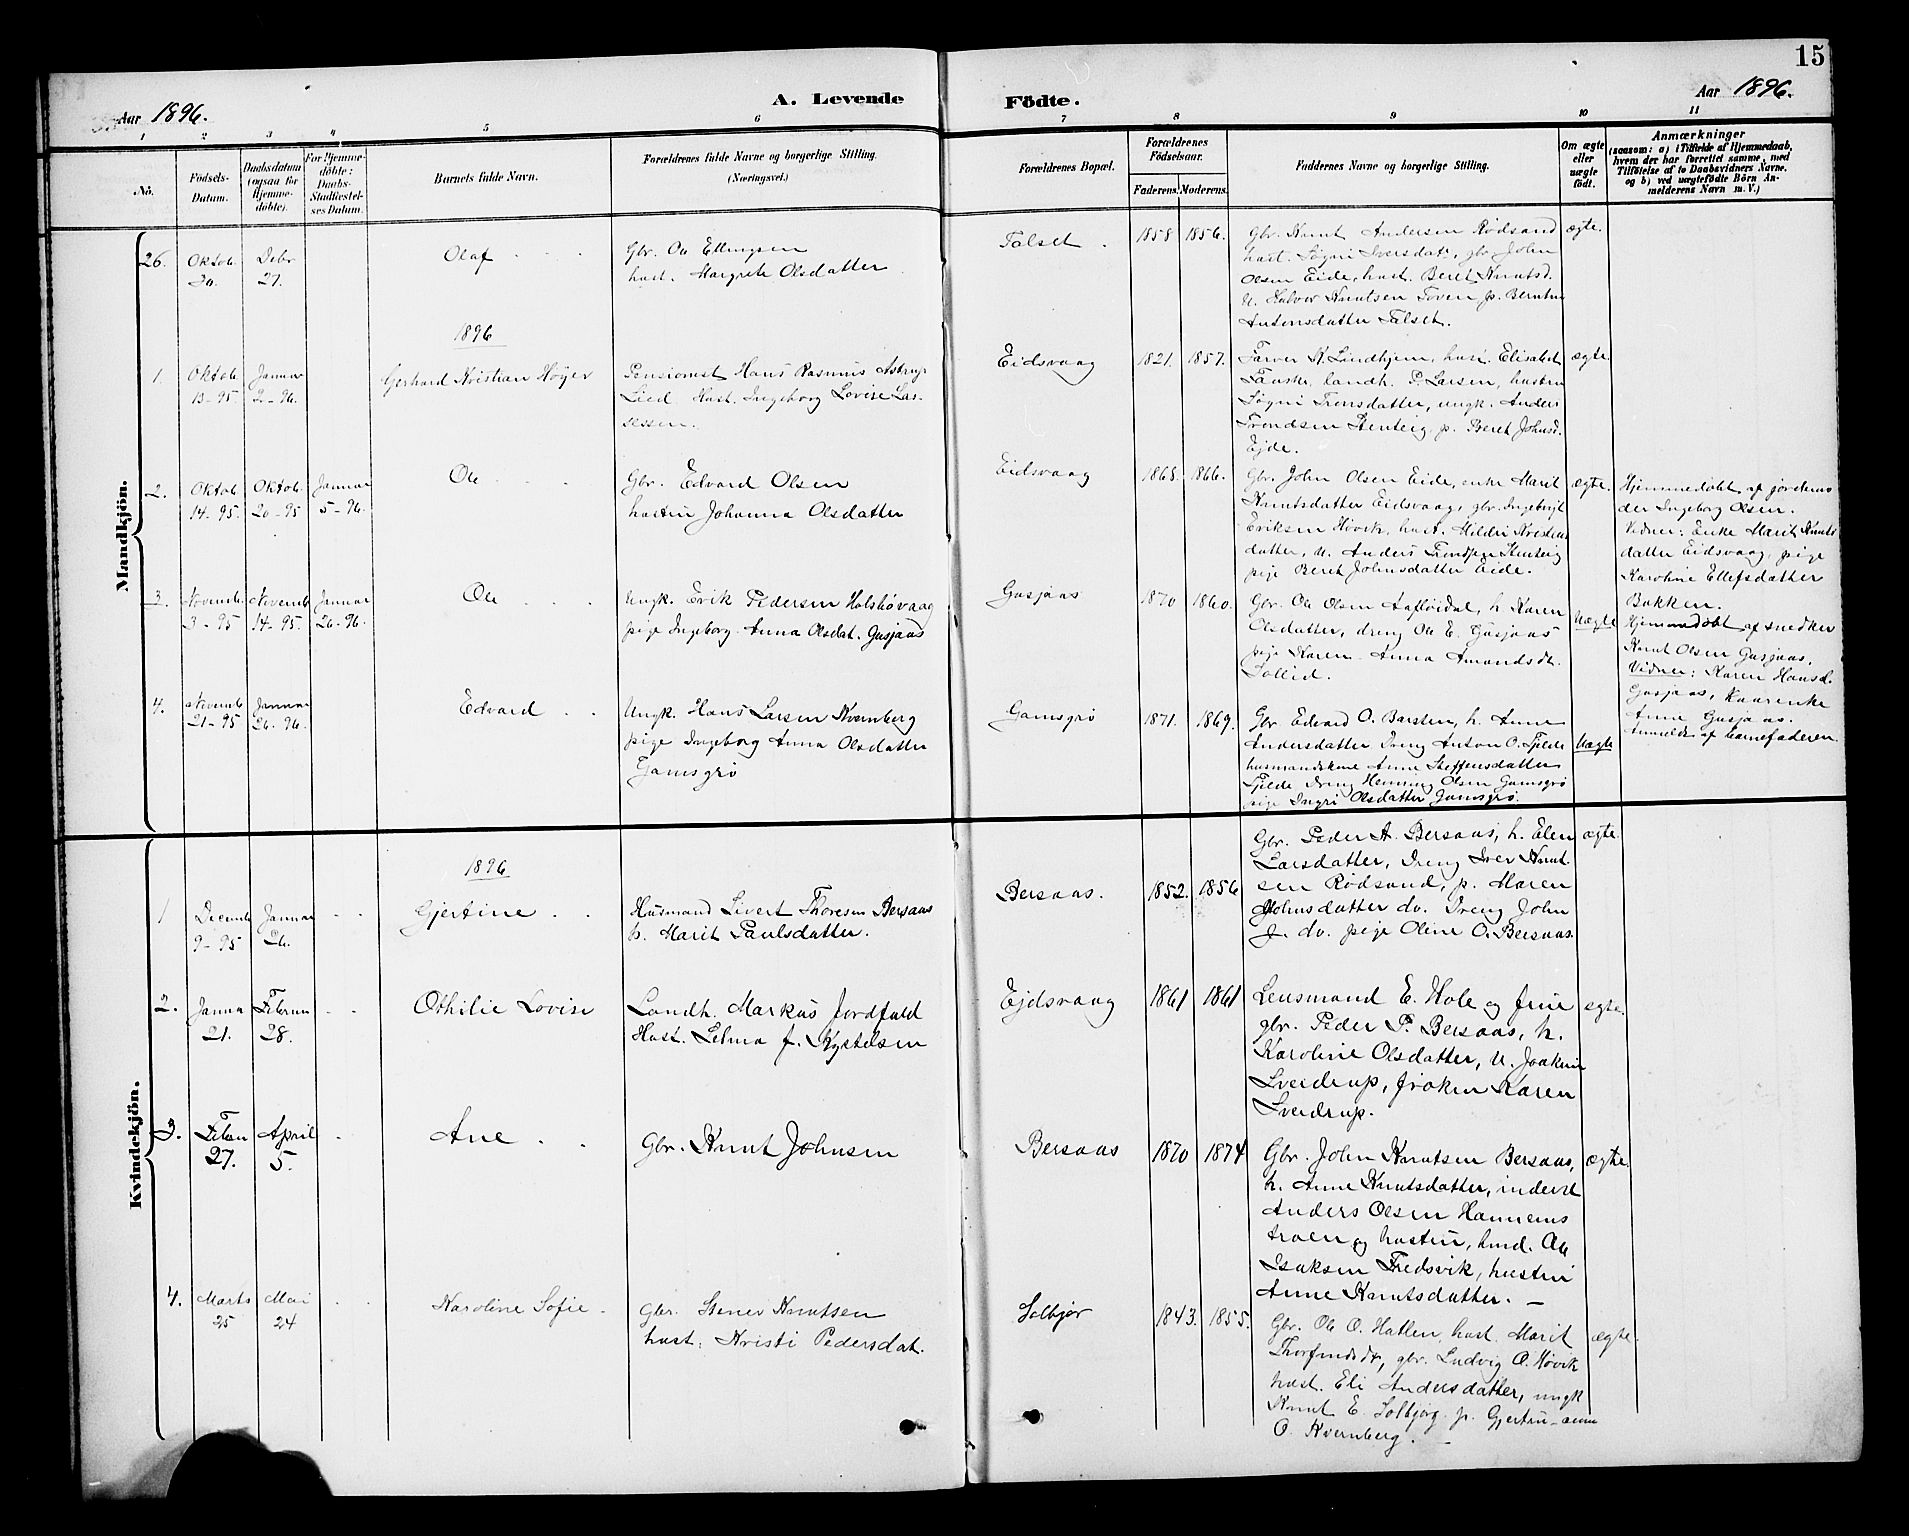 15
Aar 1896.
A. Levende
Födte.
Aar 1896.
1 2 3 4 5 6 7 8 9 10 11
No.
Födsels-
Datum.
Daabsdatum
(ogsaa for
Hjemme-
døbte).
For Hjemme-
döbte:
Daabs-
Stadfæstel-
ses Datum.
Barnets fulde Navn.
Forældrenes fulde Navne og borgerlige Stilling.
(Næringsvei.)
Forældrenes Bopæl.
Forældrenes
Födselsaar.
Faderens. Moderens.
Faddernes Navne og borgerlige Stilling.
Om ægte
eller
uægte
født.
Anmærkninger
(saasom: a) i Tilfælde af Hjemmedaab,
hvem der har forrettet samme, med
Tilföielse af to Daabsvidners Navne,
og b) ved uægtefödte Börn An-
melderens Navn m. V.)
Mandkjön.
26.
Oktob.
30.
Debr
27.
Olaf
Gbr. Ole Ellingsen
hust. Margrete Olsdatter
Talset
1858 1856.
Gbr. Knut Andersen Rødsand
hust. Søgni Iversdat., gbr John
Olsen Eide, hust. Beret Knutsd.
U. Halvor Knutsen Toven p. Berntine
Antonsdatter Talset.
ægte.
1896
1.
Oktob.
13-95
Januar
2-96.
Gerhard Kristian Høyer
Pensionist Hans Rasmus Astrup
Lied Hust. Ingeborg Lovise Las-
sessen.
Eidsvaag
1821. 1857.
Farver K. Lindhjem, hust. Elisabet
Fauske, landh. P. Larsen, hustru
Søgni Tronsdatter, ungk. Anders
Trondsen Stenteig, p. Beret Johnsd.
Ejde.
ægte
2.
Oktob.
14-95.
Oktob.
20-95
Januar
5-96.
Ole
Gbr. Edvard Olsen
hustru Johanna Olsdatter
Eidsvaag
1868. 1866.
Gbr. John Olsen Eide, enke Marit
Knutsdatter Eidsvaag, gbr. Ingebrigt
Eriksen Høvik, hust. Mildri Kristians
datter, U. Anders Trondsen Stenteig
pige Beret Johnsdatter Eide.
ægte.
Hjemmedøbt af jordemo
der Ingeborg Olsen.
Vidner: Enke Marit Knuts
datter Eidsvaag, pige
Karoline Ellefsdatter
Bakken.
3.
Novemb.
3-95
Novemb
14-95.
Januar
26-96.
Ole
Ungk. Erik Pedersen Holshøvaag
pige Ingeborg Anna Olsdat. Gusjaas
Gusjaas
1870 1860.
Gbr. Ole Olsen Aafløidal, h. Karen
Olsdatter, dreng Ole E. Gusjaas
pige Karen Anna Amandsdt.
Sollid.
Uægte
Hjemmedøbt af snedker
Knut Olsen Gusjaas.
Vidner: Karen Hansd.
Gusjaas, Kaarenke
Anne Gusjaas.
4.
Novemb
21-95
Januar
26-96.
Edvard
Ungk. Hans Larsen Kvernberg
pige Ingeborg Anna Olsdatter
Gamsgrø
Gamsgrø
1871. 1869.
Gbr Edvard O. Barsten, h. Anne
Andersdatter Dreng Anton O. Tjelde
husmandskone Anne Steffensdatter
Tjelde Dreng Henning Olsen Gamsgrø
pige Ingri Olsdatter Gamsgrø.
Uægte
Anmeldt af barnefaderen.
Kvindekjön.
1896
1
Decemb
9-95
Januar
26.
Gjertine
Husmand Sivert Thoresen Bersaas
h. Marit Paulsdatter.
Bersaas.
1852. 1856
Gbr. Peder A. Bersaas, h. Elen
Larsdatter, Dreng Iver Knut-
sen Rødsand, p. Maren
Johnsdatter do. Dreng John
J. do. pige Oline O. Bersaas.
ægte
2.
Janua
21.
Februar
28.
Othilie Lovise
Landh. Markus Jordfald
Hust. Selma f. Kystelsen
Ejdsvaag
1861 1861
Lensmand E. Hole og frue
gbr. Peder P. Bersaas, h.
Karoline Olsdatter, U. Joakim
Sverdrup, frøken Karen
Sverdrup.
ægte.
3.
Febru
27.
April
5.
Ane
Gbr. Knut Johnsen
Bersaas
1870 1874
Gbr. John Knutsen Bersaas,
h. Anne Knutsdatter, inderst
Anders Olsen Hannems
traen og hustru, hmd. Ole
Isaksen Fredsvik, hustru
Anne Knutsdatter.
ægte.
4.
Marts
25
Mai
24
Karoline Sofie
Gbr. Stener Knutsen
hust. Kristi Pedersdat.
Solbjør
1843. 1855.
Gbr. Ole O. Hatlen, hust. Marit
Thorfinsdt, gbr. Ludvig O. Høvik
hust. Eli Andersdatter, ungk
Knut E. Solbjørg p. Gjertru-anne
O. Kvernberg.
ægte.